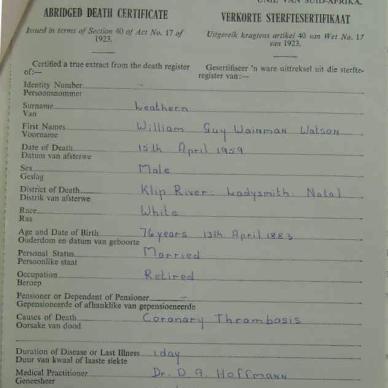 UNIE VAN SUID-AFRIKA.
ABRIDGED DEATH CERTIFICATE
VERKORTE STERFTESERTIFIKAAT
Issued in terms of Section 40 of Act No. 17 of 1923.
Uitgereik kragtens artikel 40 van Wet No. 17 van 1923.
Certified a true extract from the death register of:—
Gesertifiseer 'n ware uittreksel uit die sterfte-register van:—
Identity Number -
Persoonsnommer
Surname Leathern
Van
First Names William Guy Wainman Watson
Voorname
Date of Death 15th April 1959
Datum van afsterwe
Sex Male
Geslag
District of Death Klip River: Ladysmith: Natal
Distrik van afsterwe
Race White
Ras
Age and Date of Birth 76 years 13th April 1883
Ouderdom en datum van geboorte
Personal Status Married
Persoonlike staat
Occupation Retired
Beroep
Pensioner or Dependent of Pensioner -
Gepensioeneerde of afhanklike van gepensioeneerde
Causes of Death Coronary Thrombosis
Oorsake van dood
Duration of Disease or Last Illness 1 day
Duur van kwaal of laaste siekte
Medical Practitioner Dr. D. A. Hoffmann
Geneesheer